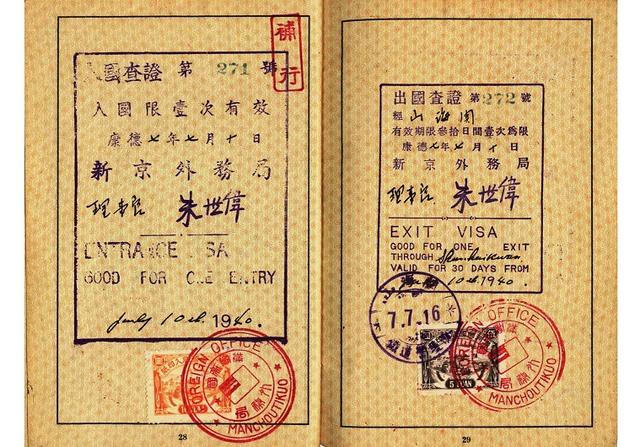 補行
入國查證 第 271 號
入國限壹次有效
康德七年七月十日
新京外務局
理事官 朱世偉
ENTRANCE VISA
GOOD FOR ONE ENTRY
July 10th. 1940.
FOREIGN OFFICE
滿洲帝國
外務局
MANCHOUTIKUO
28
出國查證 第272號
經山海關
有效期限參拾日間壹次為限
康德七年七月十日
新京外務局
理事官 朱世偉
EXIT VISA
GOOD FOR ONE EXIT
THROUGH Shanhaikwan
VALID FOR 30 DAYS FROM
July 10th. 1940.
7.7.16
5 YUAN
FOREIGN OFFICE
外務局
MANCHOUTIKUO
29